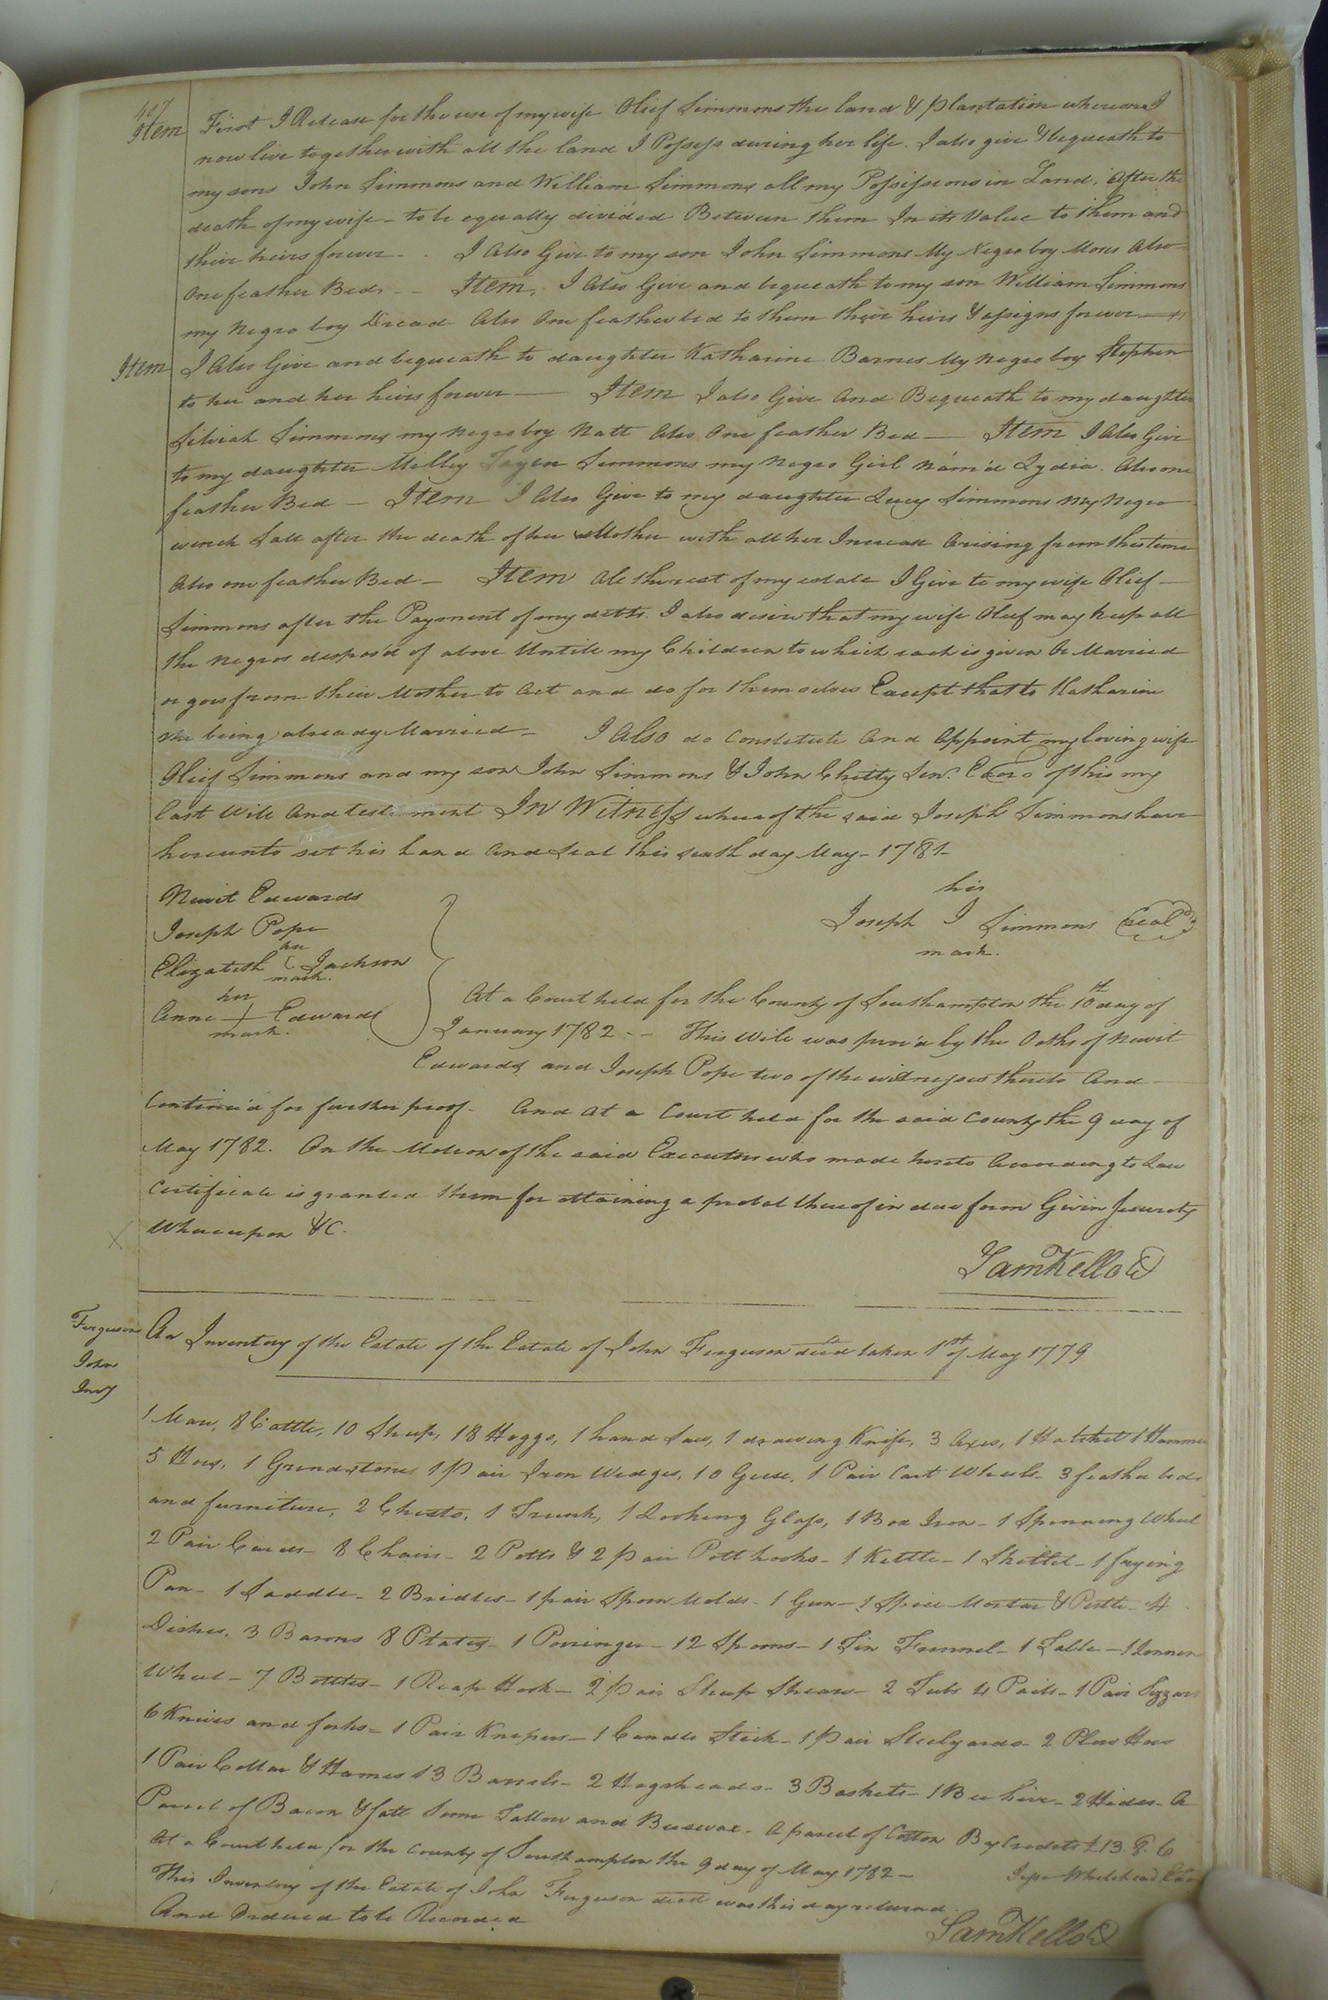 417
Item First I Release for the use of my wife Olief Simmons the land & plantation whereon I
now live together with all the land I Possess during her life. I also give & bequeath to
my sons John Simmons and William Simmons all my Possessions in Land, After the
death of my wife - to be equally divided Between them In its Value to them and
their heirs forever - . I Also Give to my son John Simmons My Negro boy Moses Also
One feather Bed. - - Item, I Also Give and bequeath to my son William Simmons
my Negro boy Dread Also One feather bed to them their heirs & assigns forever
Item I Also Give and bequeath to daughter Katharine Barnes My negro boy Stephen
to her and her heirs forever - Item I also Give And Bequeath to my daughter
Silviah Simmons my negro boy Natt Also One feather Bed - Item I Also Give
to my daughter Milley Simmons my Negro Girl Nam'd Lydia. Also one
feather Bed - Item I Also Give to my daughter Lucy Simmons My Negro
wench Sall after the death of her Mother with all her Increase Arising from this time
Also one feather Bed - Item Als the rest of my estate I Give to my wife Olief -
Simmons after the Payment of my debts. I also desire that my wife Olief may keep all
the negros dispos'd of above Untill my Children to which each is given be Married
or goes from their Mother to Act and do for themselves Except that to Katharine
She being already Married - I Also do Constitute And Appoint my loving wife
Olief Simmons and my son John Simmons & John Chitty Senr. Exors of this my
last Will And testament In Witness whereof the said Joseph Simmons have
hereunto set his hand And Seal this sixth day May - 1781 -
Newit Edwards
his
Joseph I Simmons (seal)
mark.
Joseph Pope
her
Elizabeth C Jackson
mark.
her
Anne + Edwards
mark.
At a Court held for the County of Southampton the 10th day of
January 1782 - - This Will was prov'd by the Oaths of Newit
Edwards and Joseph Pope two of the witnesses thereto And -
Continu'd for further proof - And At a Court held for the said County the 9 day of
May 1782. On the Motion of the said Executors who made hereto According to Law
Certificate is granted them for obtaining a probat thereof in due form Givin Security
Whereupon &C.
Sam Kello C
Ferguson
John
Invy
An Inventory of the Estate of the Estate of John Ferguson decd taken 1st of May 1779
1 Mare, 8 Cattle, 10 Sheep, 18 Hoggs, 1 hand Saw, 1 drawing Knife, 3 Axes, 1 Hatchet 1 Hammer
5 Hoes, 1 Grindstone 1 pair Iron Wedges, 10 Geese, 1 Pair Cart Wheels - 3 feather beds
and furniture, 2 Chests, 1 Trunk, 1 Looking Glass, 1 Box Iron - 1 Spinning Wheel
2 Pair Cards - 8 Chairs - 2 Potts & 2 pair Pott hooks - 1 Kettle - 1 Skillet - 1 frying
Pan - 1 Saddle - 2 Bridles - 1 pair Spoon Molds - 1 Gun - 1 Mortar & Pestle - 4
Dishes, 3 Basons 8 Plates - 1 Porringer - 12 Spoons - 1 Tin Funnel - 1 Table - 1 Linnen
Wheel - 7 Bottles - 1 Reap Hook - 2 pair Sheep Shears - 2 Tubs 4 Pails - 1 Pair Sizzars
6 Knives and forks - 1 Pair Knipers - 1 Candle Stick - 1 pair Steelyards - 2 Plow Hoes
1 Pair Collar & Hames 13 Barrels - 2 Hogsheads - 3 Baskets - 1 Bee hive - 2 Hides - A
Parcel of Bacon & fatt Some Tallow and Beeswax - A parcel of Cotton By Credits £13.8.6
At a Court held for the County of Southampton the 9 day of May 1782 - Whitehead
This Inventory of the Estate of John Ferguson decd was this day returned
And Ordered to be Recorded
Sam Kello C